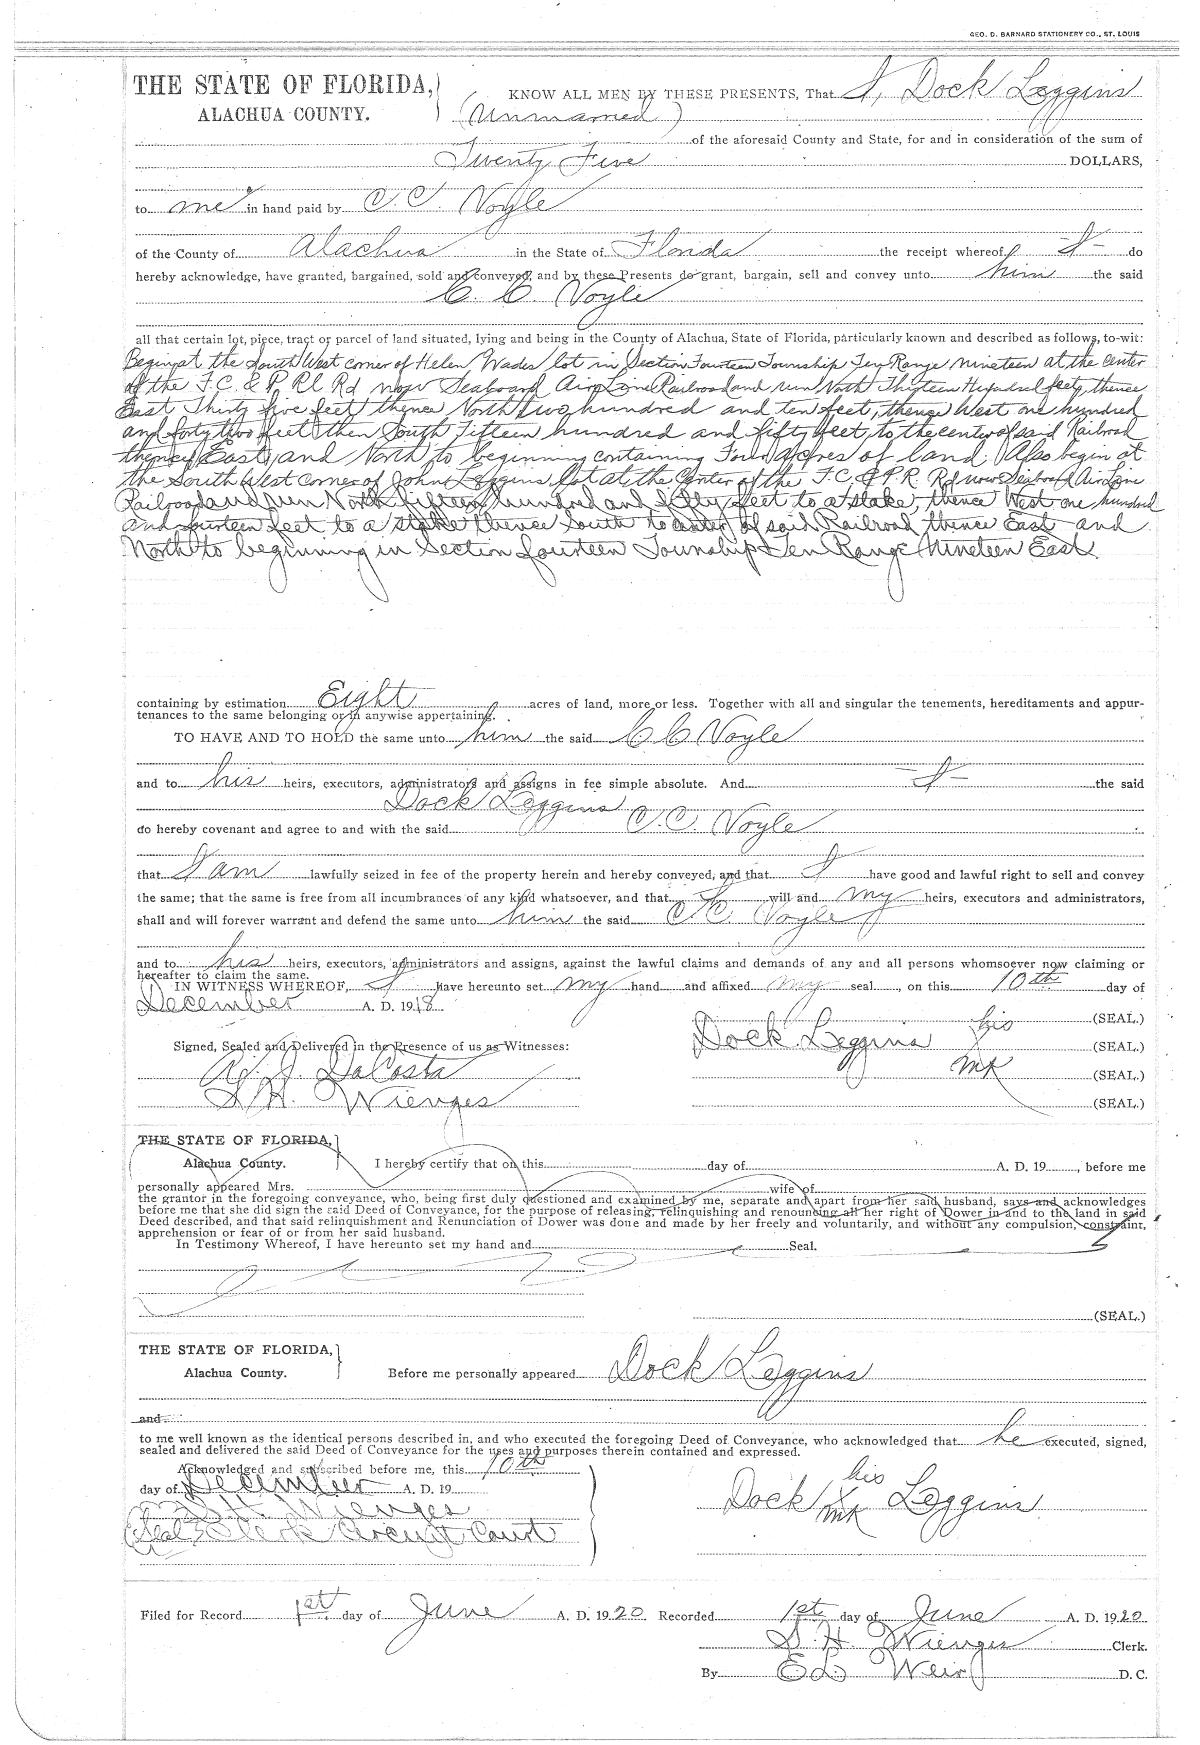 GEO. D. BARNARD STATIONERY CO., ST. LOUIS
THE STATE OF FLORIDA,
ALACHUA COUNTY.
KNOW ALL MEN BY THESE PRESENTS, That I, Dock Leggins
(Unmarried)
of the aforesaid County and State, for and in consideration of the sum of
Twenty Five DOLLARS,
to me in hand paid by C. C. Voyle
of the County of Alachua in the State of Florida the receipt whereof I do
hereby acknowledge, have granted, bargained, sold and conveyed, and by these Presents do grant, bargain, sell and convey unto him the said
C. C. Voyle
all that certain lot, piece, tract or parcel of land situated, lying and being in the County of Alachua, State of Florida, particularly known and described as follows, to-wit:
Begin at the South West corner of Helen Wades lot in Section Fourteen Township Ten Range nineteen at the center
of the F. C. & P. Rl Rd now Seaboard Air Line Railroad and run North Thirteen Hundred feet, thence
East Thirty five feet thence North two hundred and ten feet, thence West one hundred
and forty two feet then South Fifteen hundred and fifty feet, to the center of said Railroad
thence East, and North to beginning containing Four acres of land. Also begin at
the South West corner of John Leggins lot at the Center of the F. C. & P. R. Rd now Seaboard Air Line
Railroad and run North fifteen hundred and fifty feet to a stake, thence West one hundred
and fourteen feet to a stake thence South to center of said Railroad thence East and
North to beginning in Section fourteen Township Ten Range Nineteen East.
containing by estimation Eight acres of land, more or less. Together with all and singular the tenements, hereditaments and appur-
tenances to the same belonging or in anywise appertaining.
TO HAVE AND TO HOLD the same unto him the said C C Voyle
and to his heirs, executors, administrators and assigns in fee simple absolute. And I the said
Dock Leggins
do hereby covenant and agree to and with the said C. C. Voyle
that I am lawfully seized in fee of the property herein and hereby conveyed, and that I have good and lawful right to sell and convey
the same; that the same is free from all incumbrances of any kind whatsoever, and that I will and my heirs, executors and administrators,
shall and will forever warrant and defend the same unto him the said C C Voyle
and to his heirs, executors, administrators and assigns, against the lawful claims and demands of any and all persons whomsoever now claiming or
hereafter to claim the same.
IN WITNESS WHEREOF, I have hereunto set my hand and affixed my seal, on this 10th day of
December A. D. 1918
(SEAL.)
Signed, Sealed and Delivered in the Presence of us as Witnesses:
Dock Leggins his (SEAL.)
DaCosta
mk (SEAL.)
S. H. Wienges
(SEAL.)
THE STATE OF FLORIDA,
Alachua County.
I hereby certify that on this day of A. D. 19 , before me
personally appeared Mrs. wife of
the grantor in the foregoing conveyance, who, being first duly questioned and examined by me, separate and apart from her said husband, says and acknowledges
before me that she did sign the said Deed of Conveyance, for the purpose of releasing, relinquishing and renouncing all her right of Dower in and to the land in said
Deed described, and that said relinquishment and Renunciation of Dower was done and made by her freely and voluntarily, and without any compulsion, constraint,
apprehension or fear of or from her said husband.
In Testimony Whereof, I have hereunto set my hand and Seal.
(SEAL.)
THE STATE OF FLORIDA,
Alachua County.
Before me personally appeared Dock Leggins
and
to me well known as the identical persons described in, and who executed the foregoing Deed of Conveyance, who acknowledged that he executed, signed,
sealed and delivered the said Deed of Conveyance for the uses and purposes therein contained and expressed.
Acknowledged and subscribed before me, this 10th
day of December A. D. 19
his
Dock X Leggins
mk
S. H. Wienges
(Seal) Clerk Circuit Court
Filed for Record 1st day of June A. D. 1920 Recorded 1st day of June A. D. 1920
S. H. Wienges Clerk.
By E L Weir D. C.